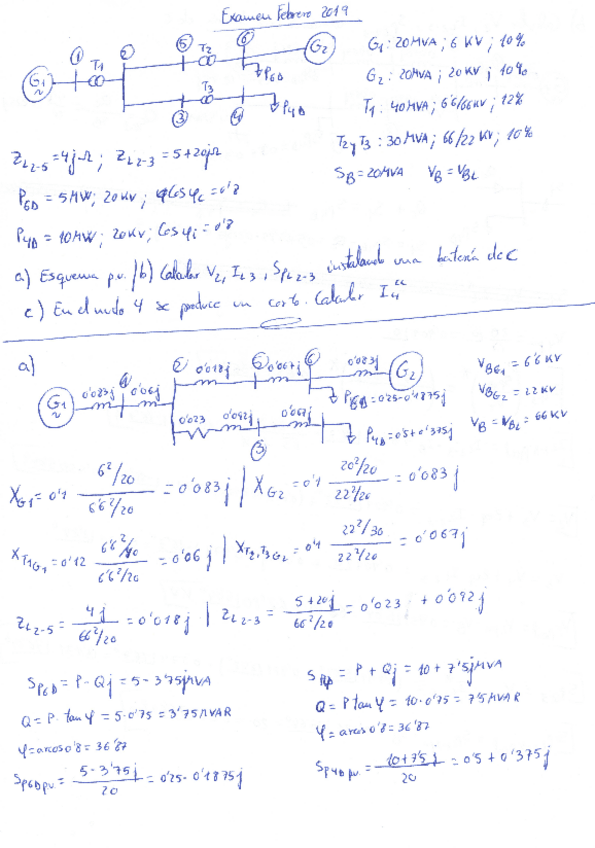 Examen Febrero 2019
① ② ⑤ T2 ⑥ G2
G1 T1 T3 P6D P4D
③ ④
G1: 20MVA; 6 KV; 10%
G2: 20MVA; 20KV; 10%
T1: 40MVA; 6'6/66KV; 12%
T2 y T3: 30MVA; 66/22 KV; 10%
SB = 20MVA VB = VBL
ZL2-5 = 4j Ω; ZL2-3 = 5+20jΩ
P6D = 5MW; 20KV; Cosφc = 0'8
P4D = 10MW; 20KV; Cosφi = 0'8
a) Esquema p.u. / b) Calcular V2, IL3, SPL2-3 instalando una batería de C
c) En el nudo 4 se produce un cortoc. Calcular I4cc
a)
G1 0'083j ① 0'06j ② 0'018j ⑤ 0'067j ⑥ 0'083j G2
P6D = 0'25-0'1875j
0'023 0'092j 0'067j
P4D = 0'5+0'375j
③
VBG1 = 6'6 KV
VBG2 = 22KV
VB = VBL = 66KV
XG1 = 0'1 6²/20 / 6'6²/20 = 0'083j | XG2 = 0'1 20²/20 / 22²/20 = 0'083j
XT1G1 = 0'12 6'6²/40 / 6'6²/20 = 0'06j | XT2,T3G2 = 0'1 22²/30 / 22²/20 = 0'067j
ZL2-5 = 4j / 66²/20 = 0'018j | ZL2-3 = 5+20j / 66²/20 = 0'023 + 0'092j
SP6D = P-Qj = 5-3'75jMVA
Q = P·tanφ = 5·0'75 = 3'75MVAR
φ = arcos0'8 = 36'87
SP6Dpu = 5-3'75j / 20 = 0'25-0'1875j
= P + Qj = 10 + 7'5jMVA
Q = P tanφ = 10·0'75 = 7'5MVAR
φ = arcos0'8 = 36'87
SP4Dpu = 10+7'5j / 20 = 0'5 + 0'375j